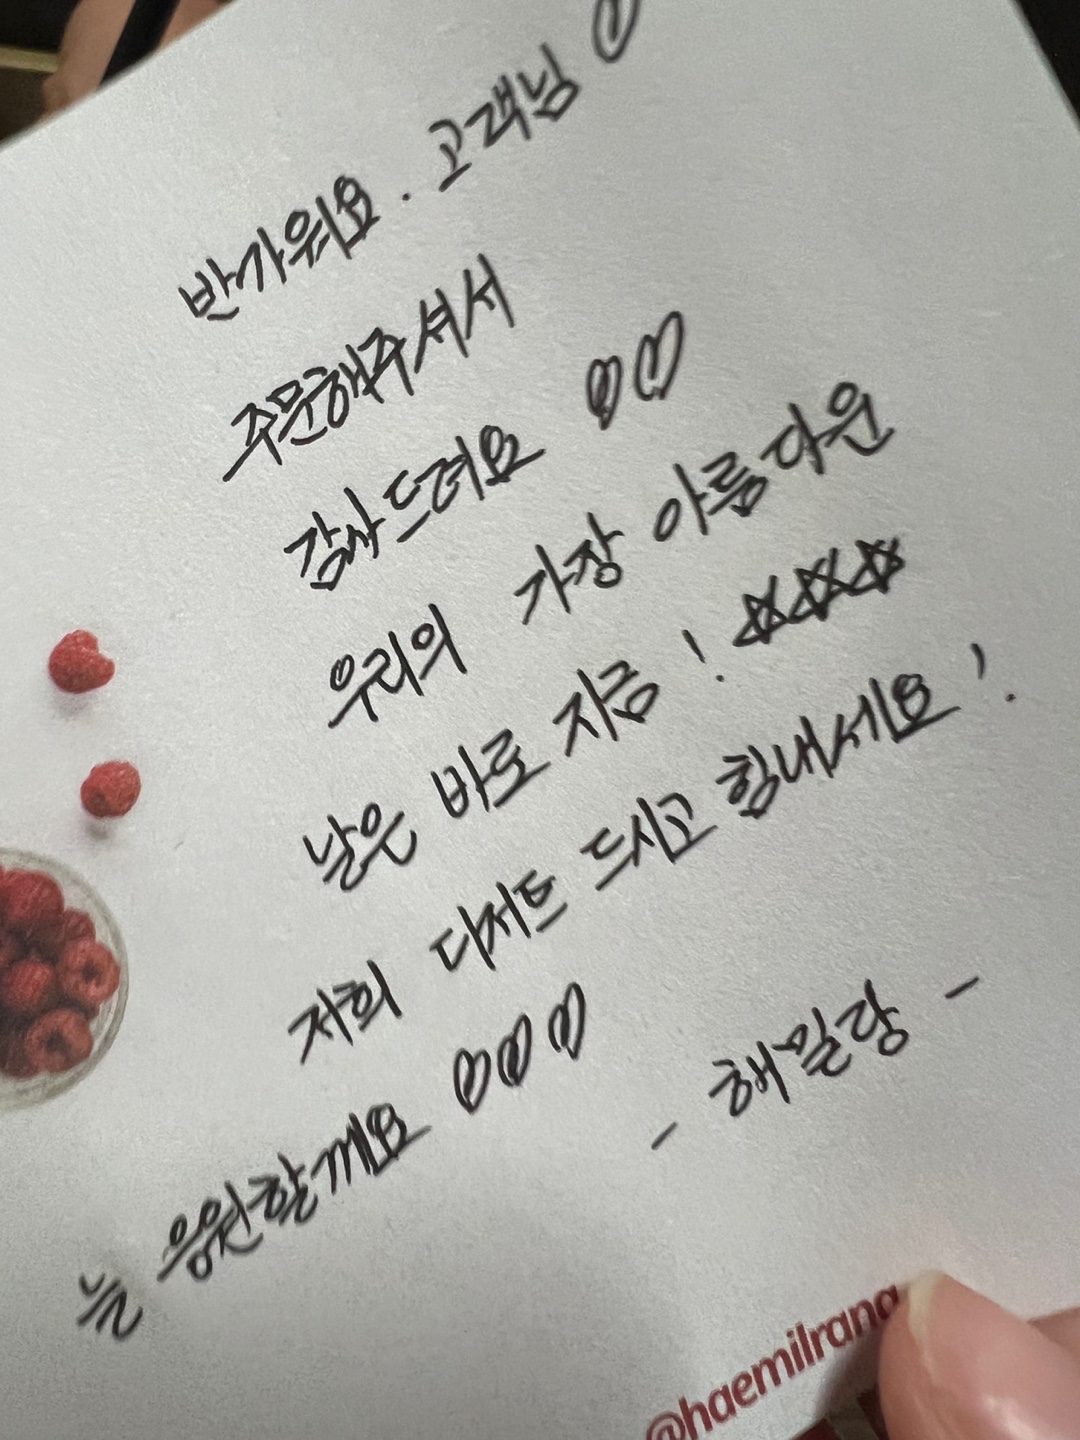 반가워요. 고객님 ♡
주문해주셔서
감사드려요 ♡♡
우리의 가장 아름다운
날은 바로 지금! ☆☆☆
저희 디저트 드시고 힘내세요!
늘 응원할께요 ♡♡♡
- 해밀랑 -
@haemilrang